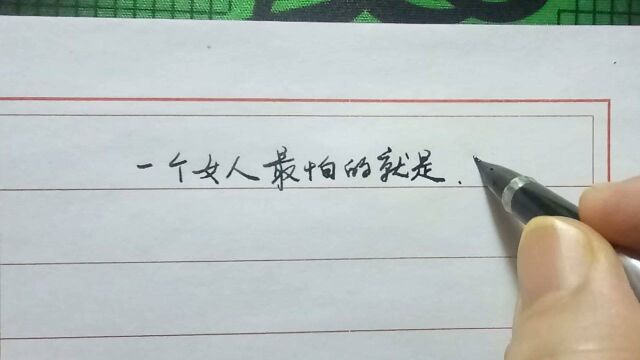 一个女人最怕的就是.